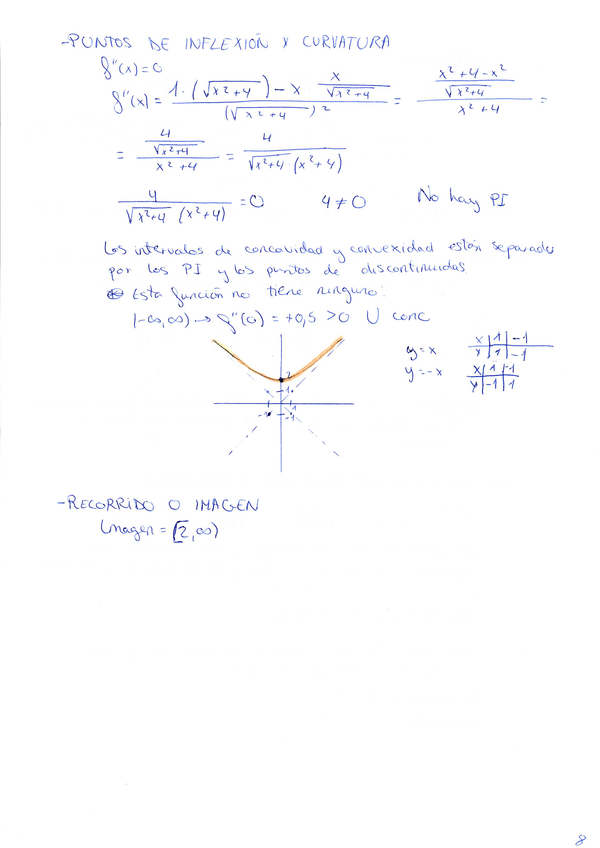 -PUNTOS DE INFLEXIÓN Y CURVATURA
f''(x)=0
f''(x) = (1·(√(x²+4)) - x · x/√(x²+4)) / (√(x²+4))² = ((x²+4-x²)/√(x²+4)) / (x²+4) =
= (4/√(x²+4)) / (x²+4) = 4 / (√(x²+4)·(x²+4))
4 / (√(x²+4) (x²+4)) = 0 4≠0 No hay PI
Los intervalos de concavidad y convexidad están separados
por los PI y los puntos de discontinuidas
Esta función no tiene ninguno:
(-∞,∞) → f''(0) = +0,5 >0 ∪ conc
y=x x | 1 | -1
y | 1 | -1
y=-x x | 1 | -1
y | -1 | 1
2
1
-1 1
-1
-RECORRIDO O IMAGEN
Imagen = [2,∞)
8